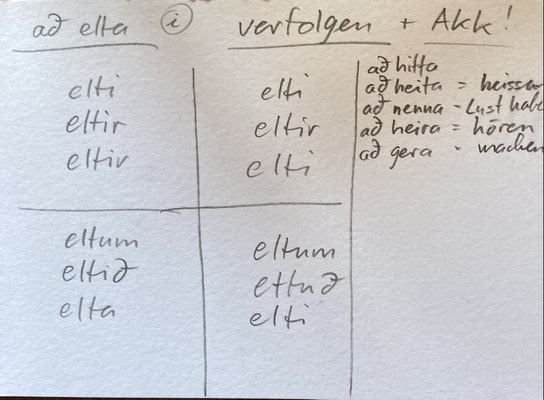 að elta i verfolgen + Akk!
elti elti
eltir eltir
eltir elti
eltum eltum
eltið eltuð
elta elti
að hitta
að heita = heissen
að nenna - Lust hab
að heira = hören
að gera - machen